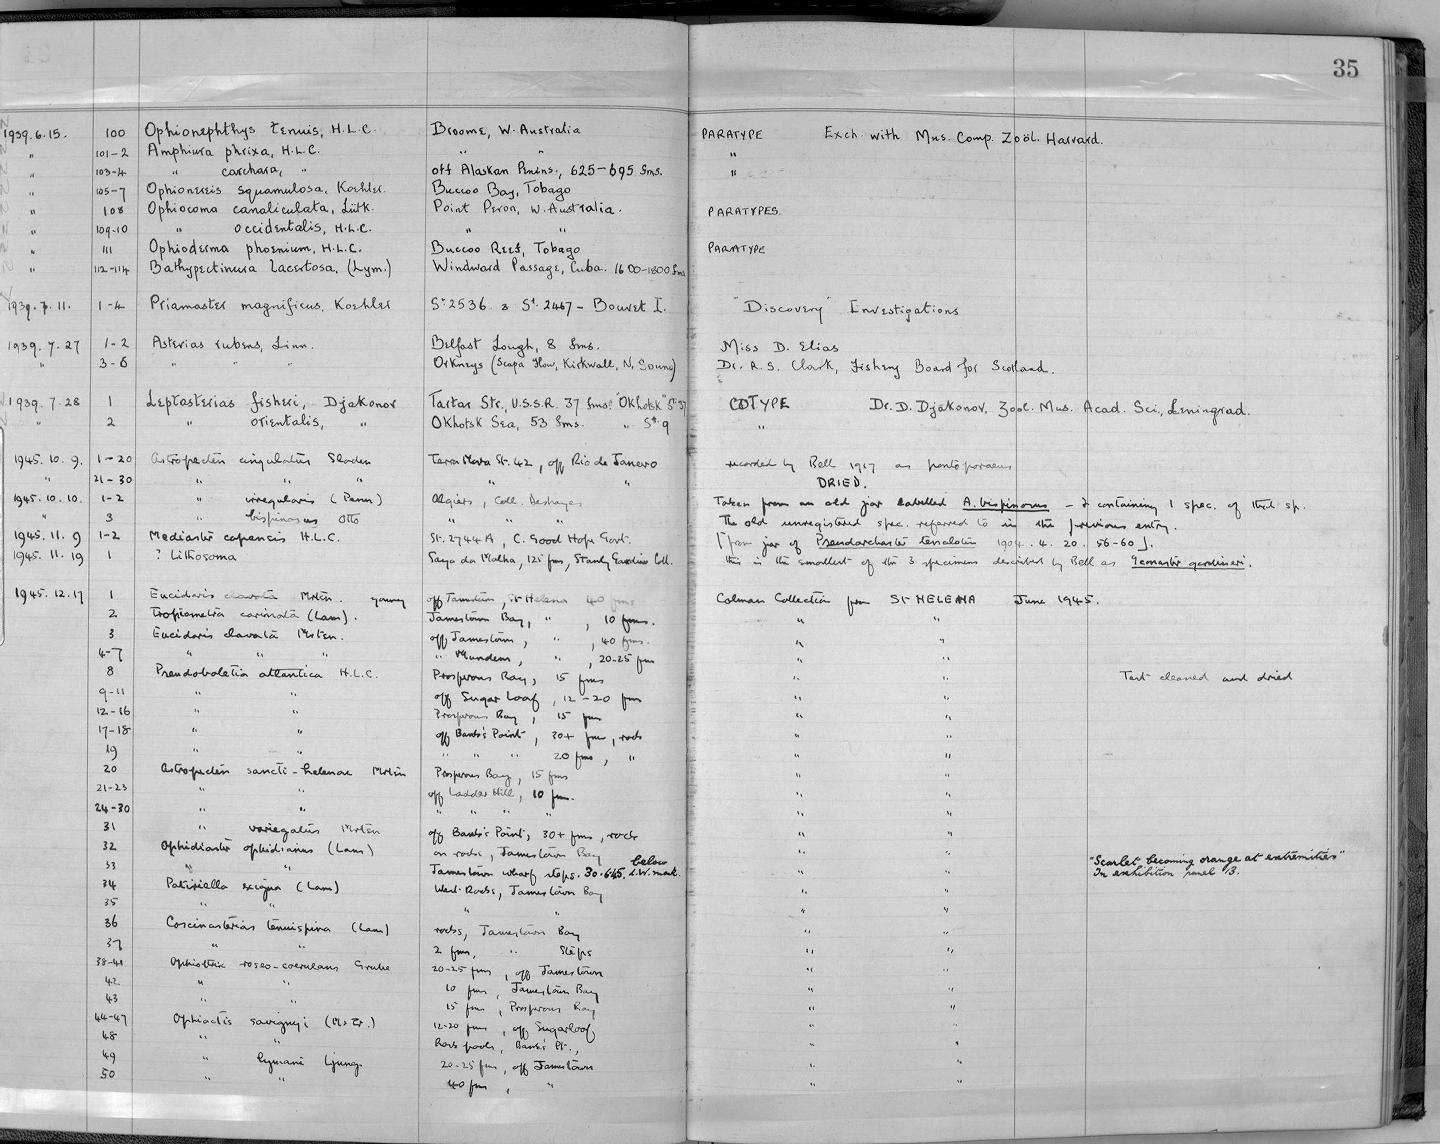 35
1939.6.15. 100 Ophionephthys tenuis, H.L.C. Broome, W. Australia PARATYPE Exch. with Mus. Comp. Zoöl. Harvard.
" 101-2 Amphiura phrixa, H.L.C. " " "
" 103-4 " carchara, " off Alaskan Penins., 625-695 fms. "
" 105-7 Ophionereis squamulosa, Koehler. Buccoo Bay, Tobago
" 108 Ophiocoma canaliculata, Lütk. Point Peron, W. Australia. PARATYPES.
" 109-10 " occidentalis, H.L.C. " "
" 111 Ophioderma phoenium, H.L.C. Buccoo Reef, Tobago PARATYPE
" 112-114 Bathypectinura lacertosa, (Lym.) Windward Passage, Cuba. 1600-1800 fms
1939.7.11. 1-4 Priamaster magnificus, Koehler St 2536 & St. 2467 - Bouvet I. "Discovery" Investigations
1939.7.27 1-2 Asterias rubens, Linn. Belfast Lough, 8 fms. Miss D. Elias
" 3-6 " " " Orkneys (Scapa Flow, Kirkwall, N. Sound) Dr. A.S. Clark, Fishery Board for Scotland.
1939.7.28 1 Leptasterias fisheri, Djakonov Tartar Str., U.S.S.R. 37 fms. "Okhotsk" St 37 COTYPE Dr. D. Djakonov, Zool. Mus. Acad. Sci, Leningrad.
" 2 " orientalis, " Okhotsk Sea, 53 fms. " St. 9 "
1945.10.9. 1-20 Astropecten cingulatus Sladen Terra Nova St. 42, off Rio de Janeiro recorded by Bell 1917 as pontoporaeus
" 21-30 " " " " " DRIED.
1945.10.10. 1-2 " irregularis (Penn) Algiers, Coll. Deshayes Taken from an old jar labelled A. bispinosus - & containing 1 spec. of that sp.
" 3 " bispinosus Otto " " " The old unregistered spec. referred to in the previous entry.
1945.11.9 1-2 Mediaster capensis H.L.C. St. 2744A, C. Good Hope Govt. [from jar of Pseudarchaster tenalatus 1904.4.20.56-60].
1945.11.19 1 ? Lithosoma Saya da Malha, 125 fms, Stanley Gardiner Coll. this is the smallest of the 3 specimens described by Bell as gardineri.
1945.12.17 1 Eucidaris clavata Mrtsn. young off Jamestown, St Helena 40 fms Colman Collection from ST HELENA June 1945.
2 Tropiometra carinata (Lam). Jamestown Bay, " , 10 fms. " "
3 Eucidaris clavata Mrtsn. off Jamestown, " , 40 fms. " "
4-7 " " " " Mundens, " , 20-25 fms " "
8 Pseudoboletia atlantica H.L.C. Prosperous Bay, 15 fms " " Test cleaned and dried
9-11 " " off Sugar Loaf, 12-20 fms " "
12-16 " " Prosperous Bay, 15 fms " "
17-18 " " off Banks's Point, 30+ fms, rocks " "
19 " " " " " 20 fms, " " "
20 Astropecten sancti-helenae Mrtsn Prosperous Bay, 15 fms " "
21-23 " " off Ladder Hill, 10 fm. " "
24-30 " " " " " " " "
31 " variegatus Mrtsn off Banks's Point, 30+ fms, rocks " "
32 Ophidiaster ophidianus (Lam) on rocks, Jamestown Bay " " "Scarlet becoming orange at extremities"
33 " " Jamestown wharf steps. 30.6.45. below L.W. mark. " " In exhibition panel 13.
34 Patiriella exigua (Lam) West Rocks, Jamestown Bay " "
35 " " " " " "
36 Coscinasterias tenuispina (Lam) rocks, Jamestown Bay " "
37 " " 2 fms, " Steps " "
38-41 Ophiothrix roseo-coerulans Grube 20-25 fms, off Jamestown " "
42 " " 10 fms, Jamestown Bay " "
43 " " 15 fms, Prosperous Bay " "
44-47 Ophiactis savignyi (M&Tr.) 12-20 fms, off Sugarloaf " "
48 " " Rock pools, Banks's Pt., " "
49 " lymani Ljung. 20-25 fms, off Jamestown " "
50 " " 40 fms, " " "